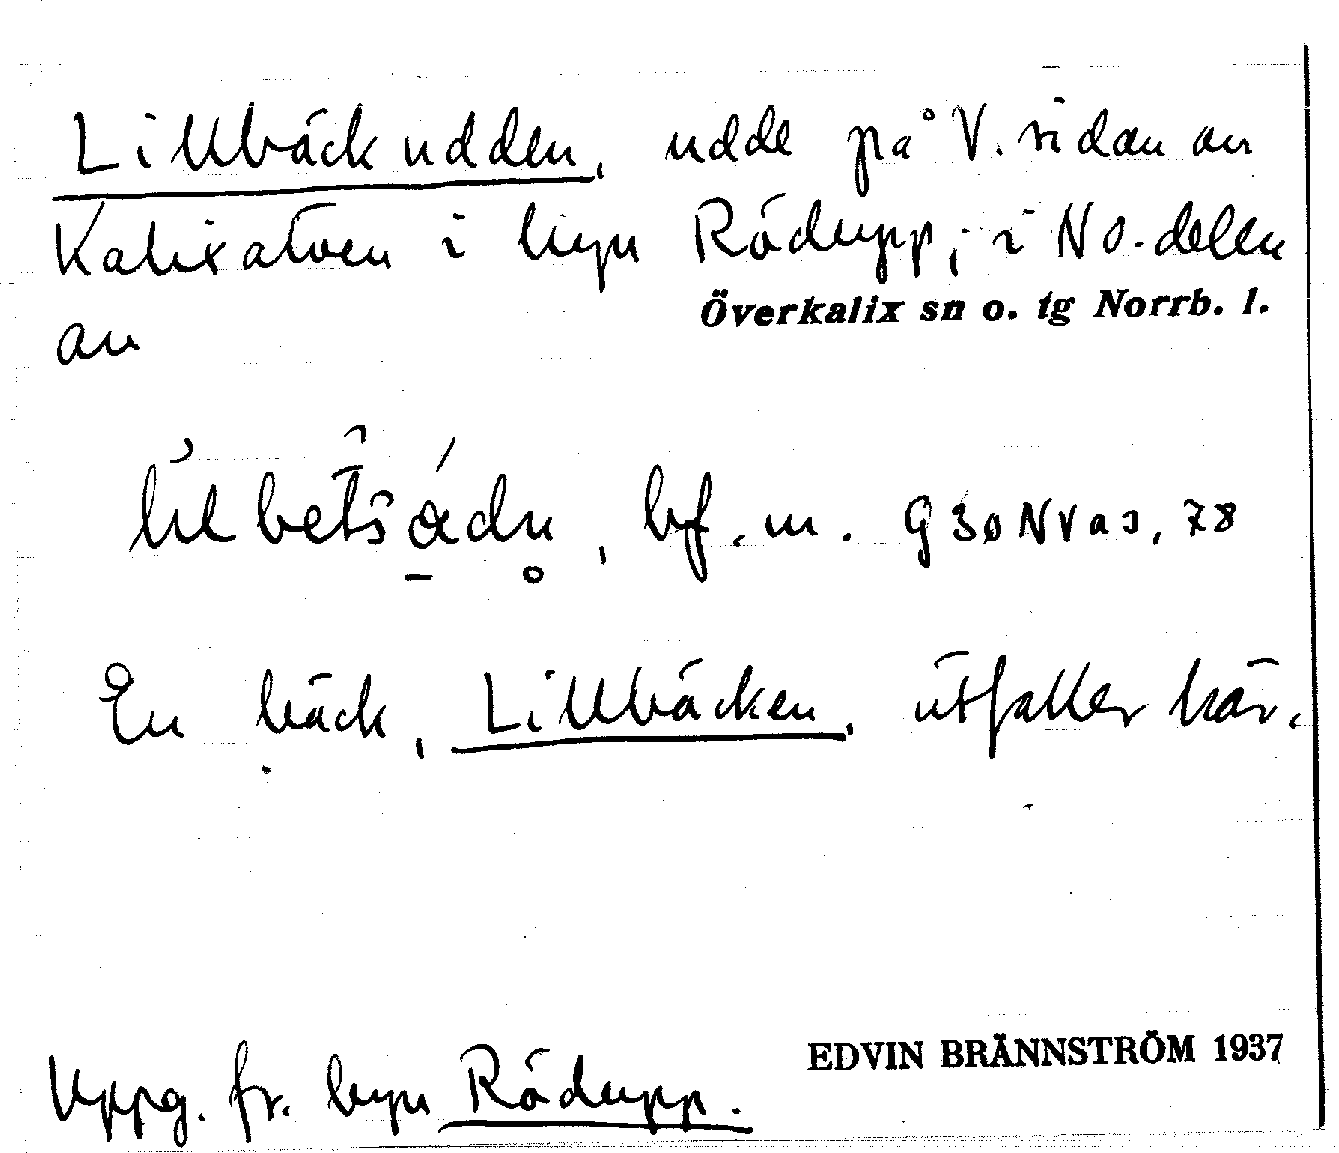 Lillbäckudden, udde på V. sidan av
Kalixälven i byn Rödupp, i NO. delen
Överkalix sn o. tg Norrb. l.
av
bf. m. G30NVa3, 78
En bäck, Lillbäcken, utfaller här.
EDVIN BRÄNNSTRÖM 1937
Uppg. fr. byn Rödupp.